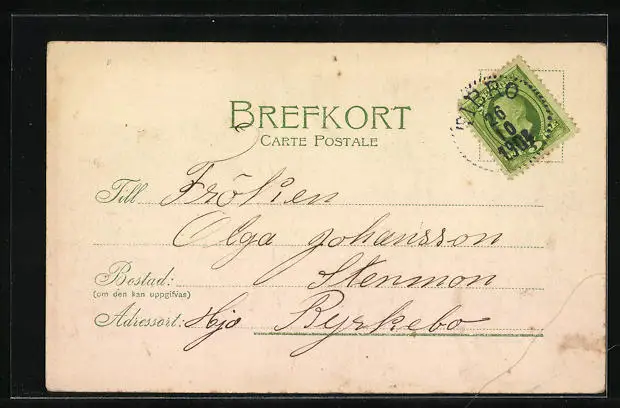 BREFKORT
CARTE POSTALE
Till Fröken
Olga Johansson
Bostad: Stenmon
(om den kan uppgifvas)
Adressort: Hjo Kyrkebo
26
10